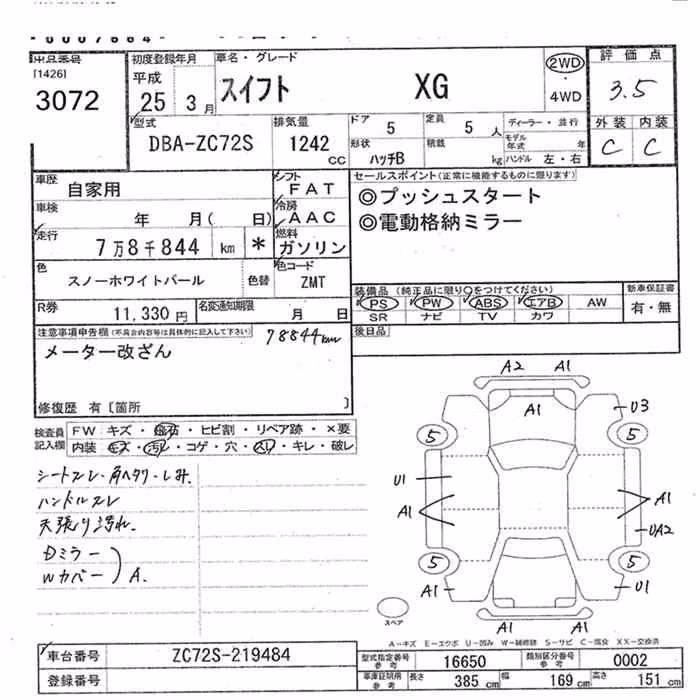 出品番号
[1426]
3072
初度登録年月
平成
25 3月
車名・グレード
スイフト XG
2WD
・
4WD
評価点
3.5
外装 内装
C C
型式
DBA-ZC72S
排気量
1242
cc
ドア
5
定員
5 人
形状
ハッチB
積載
kg
ディーラー・並行
モデル年式 年
ハンドル 左・右
車歴
自家用
シフト
FAT
車検
年 月( 日)
冷房
AAC
走行
7万8千844 km *
燃料
ガソリン
色
スノーホワイトパール
色替
色コード
ZMT
セールスポイント(正常に機能するものに限ります)
◎プッシュスタート
◎電動格納ミラー
装備品(純正品に限り○をつけてください)
PS PW ABS エアB AW
SR ナビ TV カワ
新車保証書
有・無
R券
11,330 円
名変通知期限
月 日
後日品
注意事項申告欄(不具合内容等は具体的に記入して下さい)
78844km
メーター改ざん
修復歴 有〔箇所 〕
検査員
記入欄
FW キズ・飛石・ヒビ割・リペア跡・×要
内装 キズ・汚レ・コゲ・穴・スレ・キレ・破レ
シートスレ・角ヘタリ・しみ.
ハンドルスレ
天張り汚れ.
Dミラー
Wカバー
A.
A2 A1
A1
U3
5 5
U1
A1
A1
UA2
5 5
A1
U1
A1 A1
スペア
A−キズ E−エクボ U−凹み W−補修跡 S−サビ C−腐食 XX−交換済
車台番号
ZC72S-219484
登録番号
型式指定番号
参考
16650
類別区分番号
参考
0002
車庫証明用
参考
長さ
385 cm
幅
169 cm
高さ
151 cm